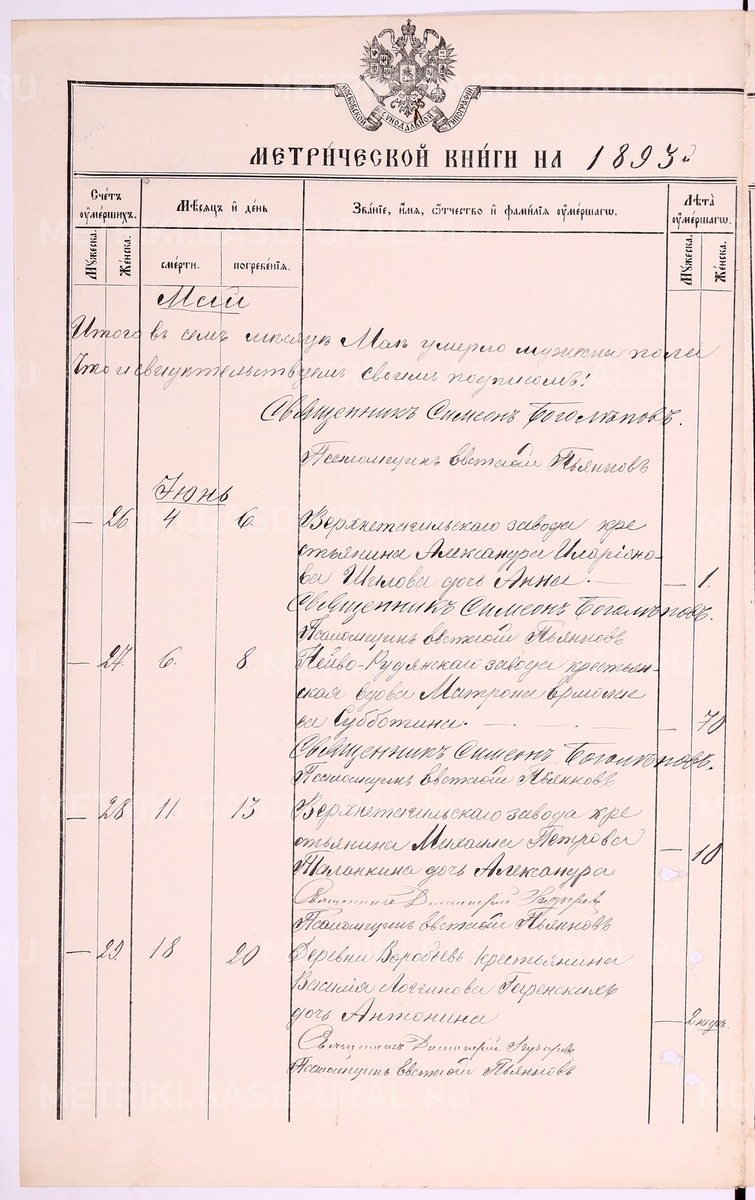 МОСКОВСКОЙ СУНОДАЛЬНОЙ ТИПОГРАФІИ
МЕТРИ́ЧЕСКОЙ КНИ́ГИ НА 1893й
Сче́тъ оумершихъ.
Мѣсяцъ и день
Зва́ніе, и́мя, ѻ́тчество и фами́лія оуме́ршагѡ.
Лѣта̀ оуме́ршагѡ.
Мꙋжеска.
Же́нска.
сме́рти.
погребе́нія.
Мꙋжеска.
Же́нска.
Май
Итого въ семъ мѣсяцѣ Маѣ умерло мужеска пола
Что и свидѣтельствуемъ своимъ подписомъ!
Священникъ Симеонъ Боголѣповъ.
Псаломщикъ Евстафій Пьянковъ
Іюнь
— 26 4 6 Верхнетагильскаго завода кре
стьянина Александра Иларіоно-
ва Шилова дочь Анна. — — 1.
Священникъ Симеонъ Боголѣповъ.
Псаломщикъ Евстафій Пьянковъ
— 27 6. 8 Нейво-Рудянскаго завода крестьян-
ская вдова Матрона Ермолае
ва Субботина. — — 70
Священникъ Симеонъ Боголѣповъ.
Псаломщикъ Евстафій Пьянковъ
— 28 11. 13 Верхнетагильскаго завода кре
стьянина Михаила Петрова
Таланкина дочь Александра — 10
Священникъ Димитрій
Псаломщикъ Евстафій Пьянковъ
— 29. 18 20 Деревни Воробьевъ крестьянина
Василія Логгинова
дочь Антонина — 2 нед.
Священникъ Димитрій
Псаломщикъ Евстафій Пьянковъ
METRIKI.GASO-URAL.RU